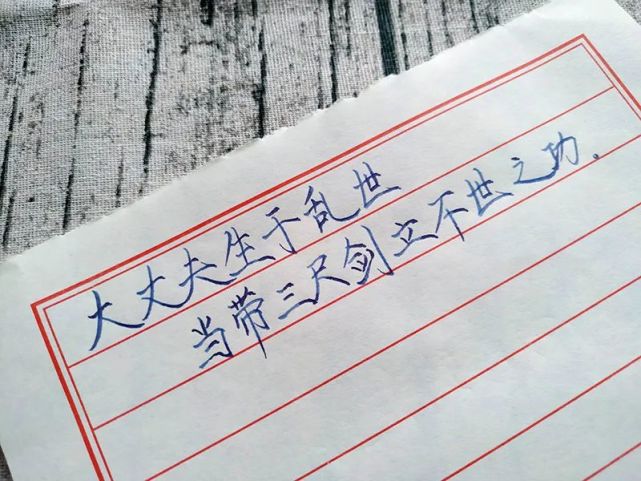 大丈夫生于乱世
当带三尺剑立不世之功.